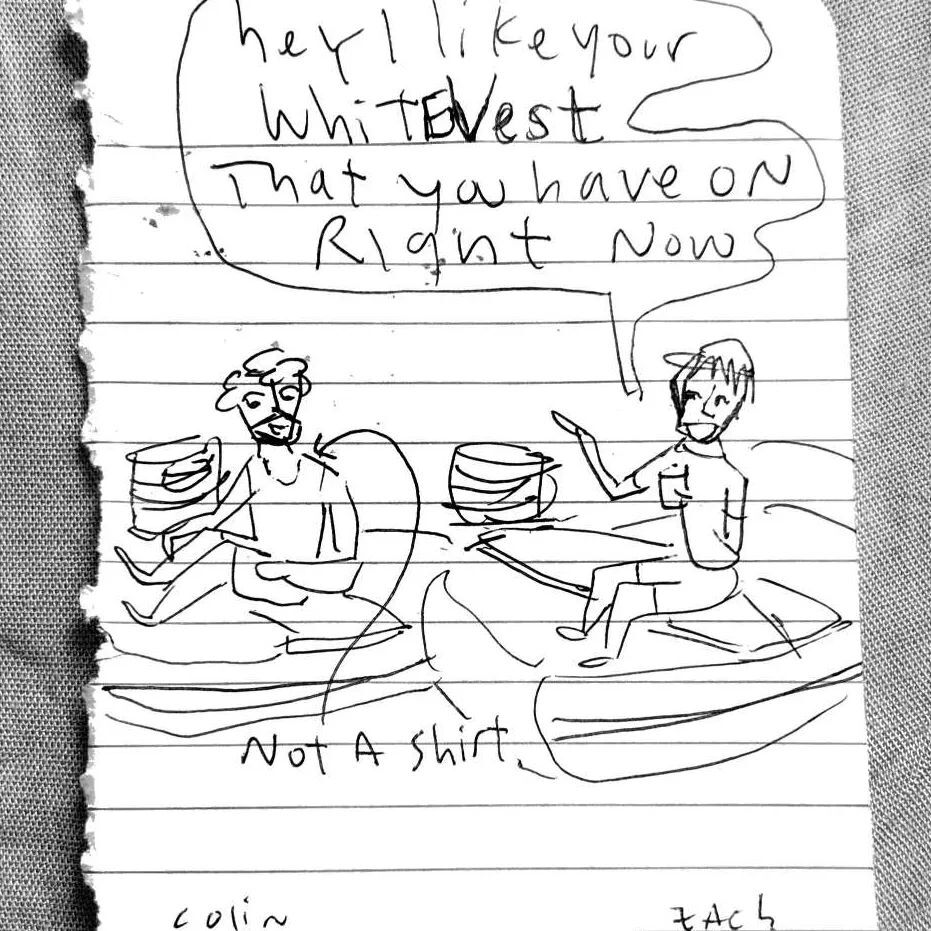 hey I like your
WhitEVest
That you have oN
RIght Now
Not A shirt.
colin
zAch